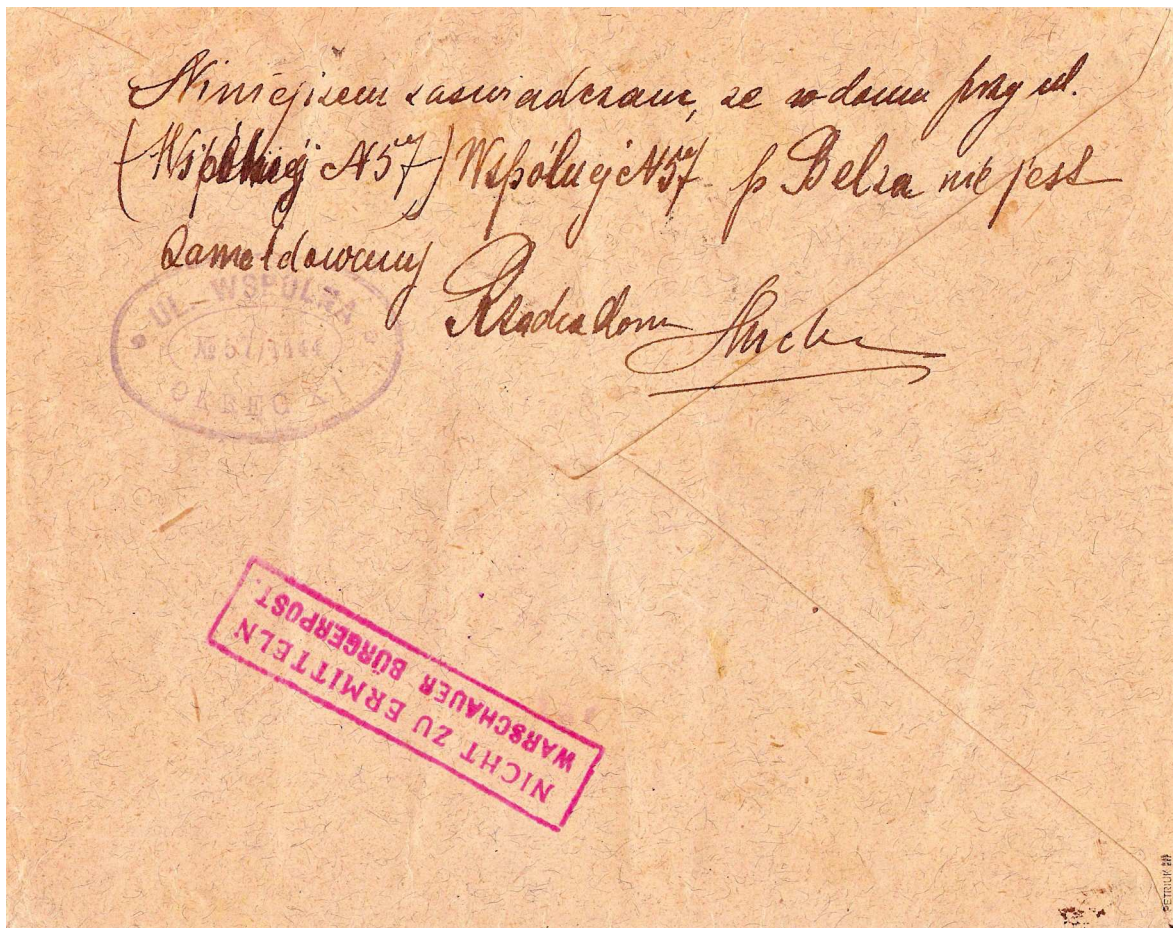 Niniejszem zaswiadczam, ze w domu przy ul.
(Wspólnej N57) Wspólnej N57 p Belza nie jest
zameldowany
Rzadca domu
UL. WSPÓLNA
№ 57/1444
OKRĘG XI
NICHT ZU ERMITTELN
WARSCHAUER BÜRGERPOST.
PETRIUK